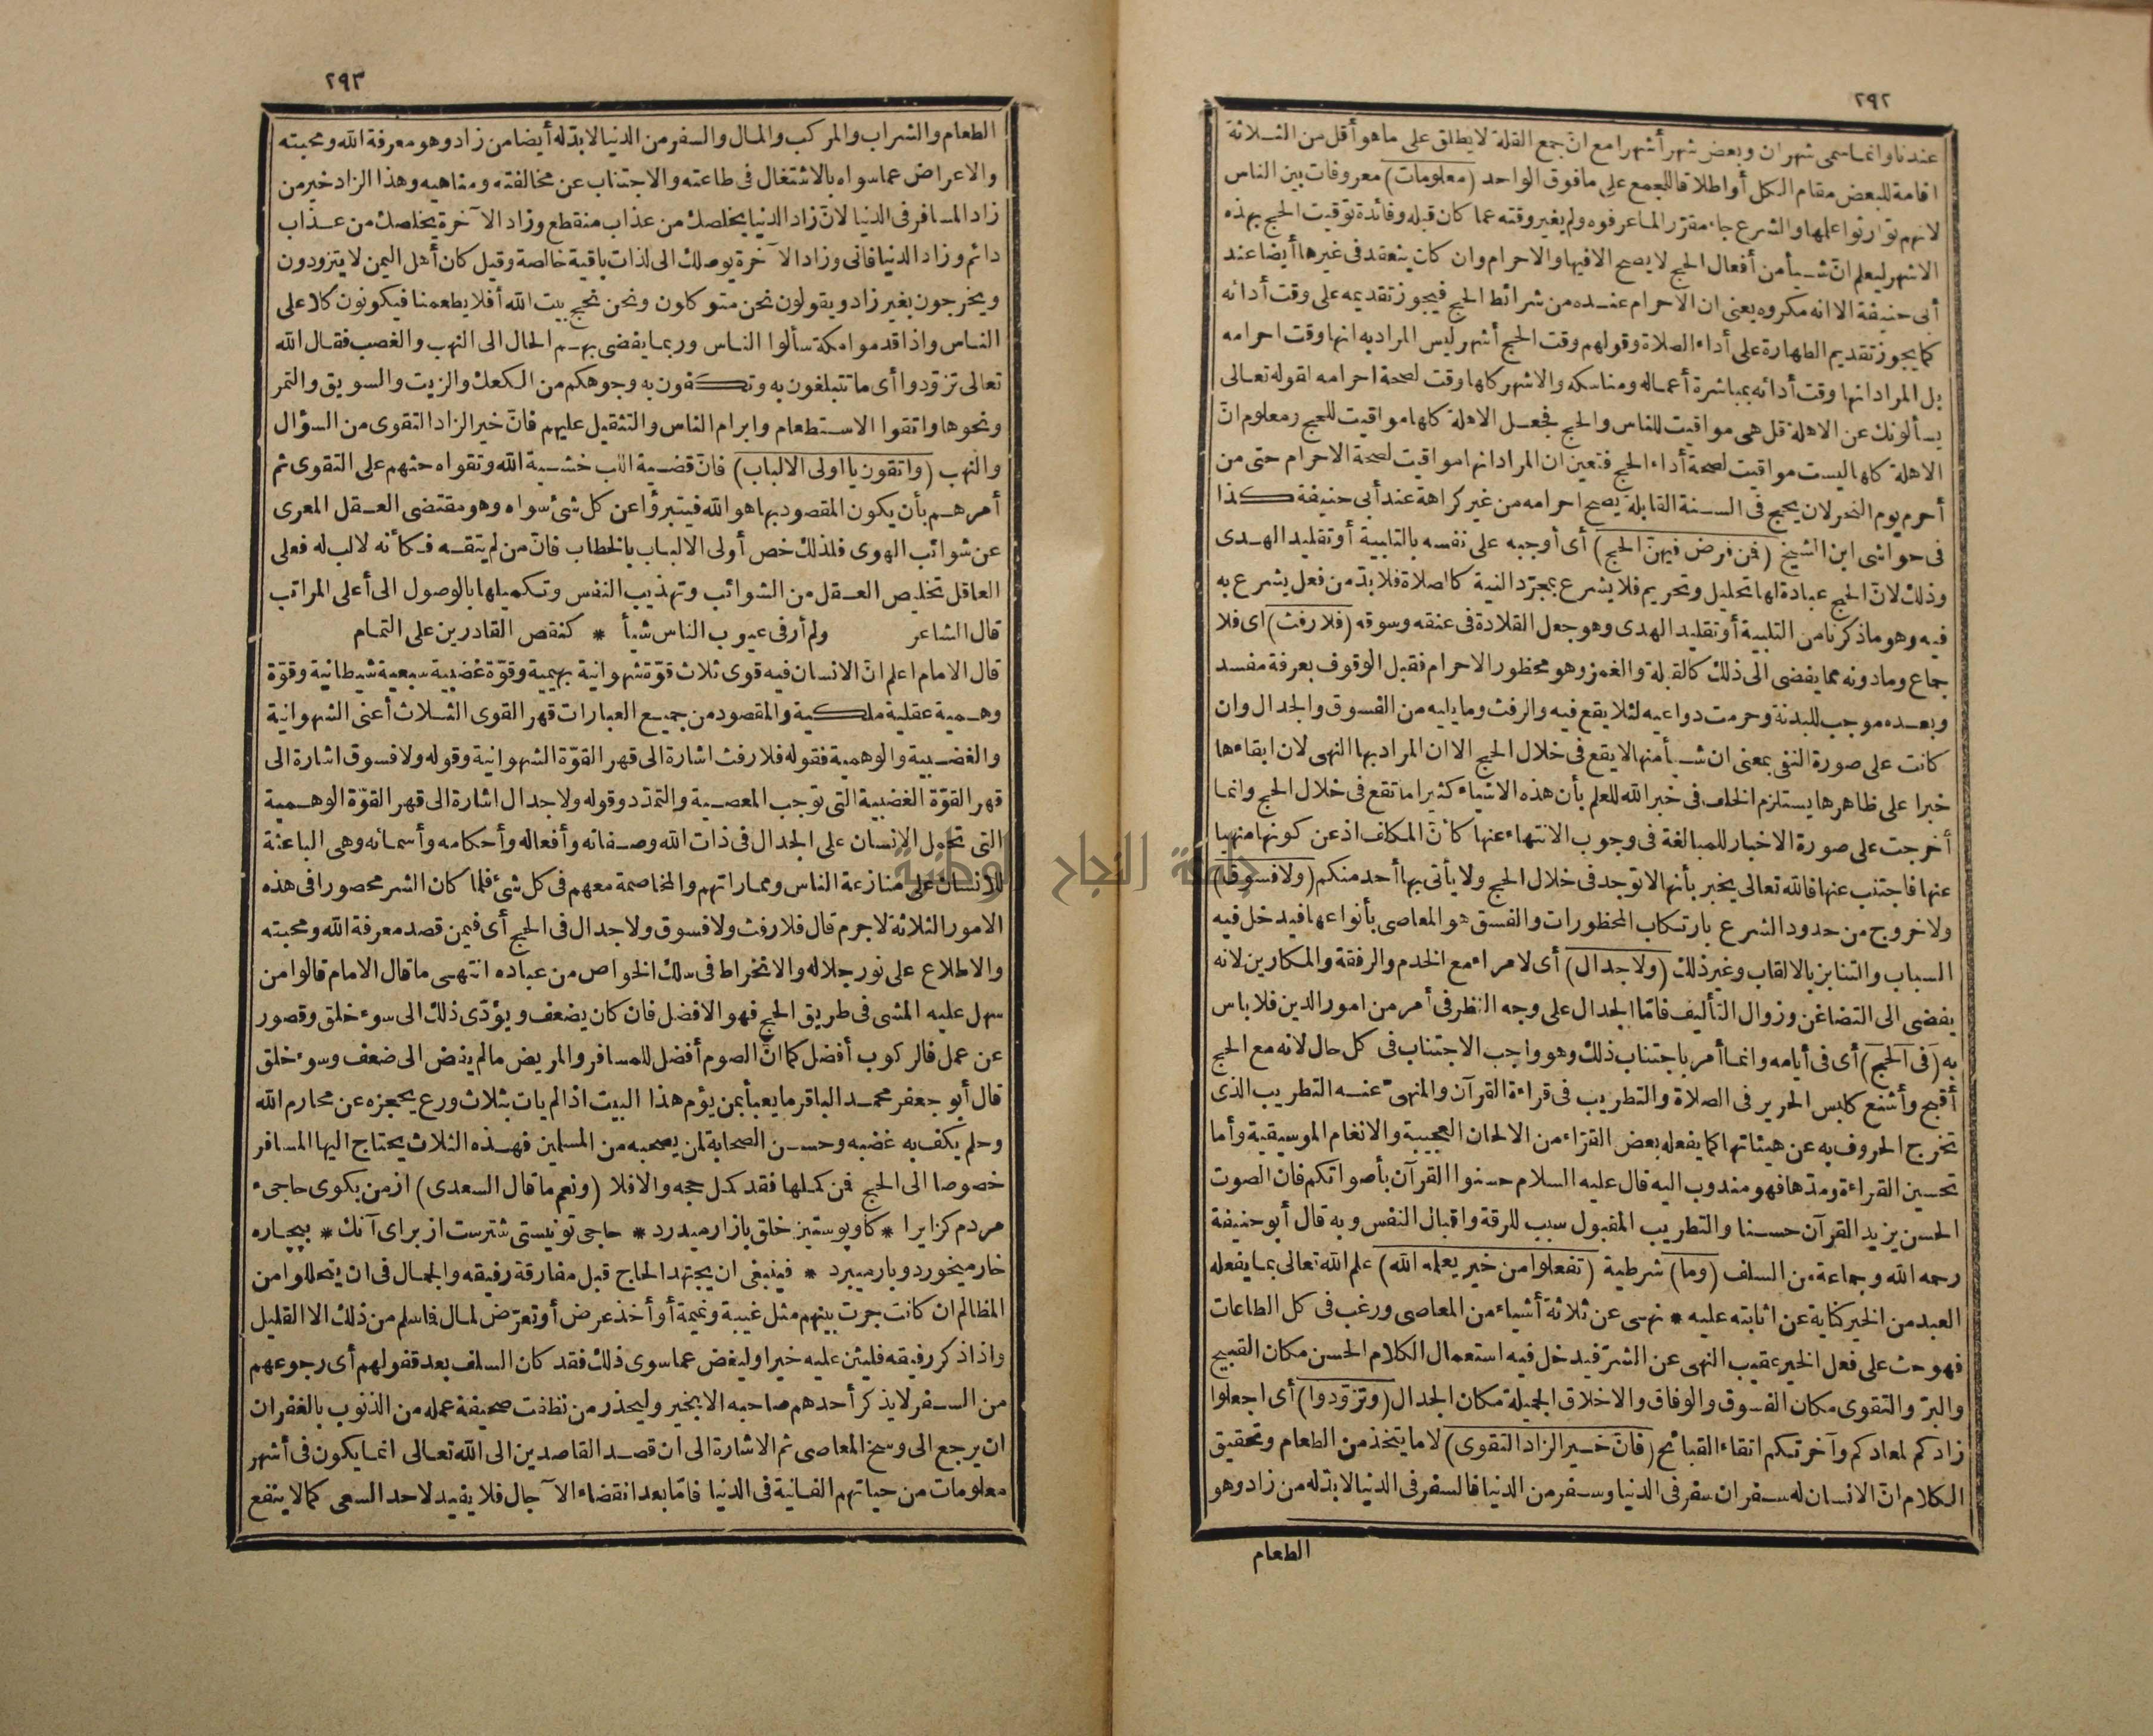 ٢٩٢
عندنا وانما سمى شهران وبعض شهر أشهرا مع ان جمع القلة لا يطلق على ما هو أقل من الثلاثة
اقامة للبعض مقام الكل أو اطلاقا للجمع على ما فوق الواحد (معلومات) معروفات بين الناس
لانهم توارثوا علمها والشرع جاء مقررا لما عرفوه ولم يغير وقته عما كان قبله وفائدة توقيت الحج بهذه
الاشهر ليعلم ان شيأ من أفعال الحج لا يصح الا فيها والاحرام وان كان ينعقد فى غيرها أيضا عند
أبى حنيفة الا انه مكروه يعنى ان الاحرام عنده من شرائط الحج فيجوز تقديمه على وقت أدائه
كما يجوز تقديم الطهارة على أداء الصلاة وقولهم وقت الحج أشهر ليس المراد به انها وقت احرامه
بل المراد انها وقت أدائه بمباشرة أعماله ومناسكه والاشهر كلها وقت لصحة احرامه لقوله تعالى
يسألونك عن الاهلة قل هى مواقيت للناس والحج فجعل الاهلة كلها مواقيت للحج ومعلوم ان
الاهلة كلها ليست مواقيت لصحة أداء الحج فتعين ان المراد انها مواقيت لصحة الاحرام حتى من
أحرم يوم النحر لان يحج فى السنة القابلة يصح احرامه من غير كراهة عند أبى حنيفة كذا
فى حواشى ابن الشيخ (فمن فرض فيهن الحج) أى أوجبه على نفسه بالتلبية أو تقليد الهدى
وذلك لان الحج عبادة لها تحليل وتحريم فلا يشرع بمجرّد النية كالصلاة فلا بدّ من فعل يشرع به
فيه وهو ما ذكرنا من التلبية أو تقليد الهدى وهو جعل القلادة فى عنقه وسوقه (فلا رفث) اى فلا
جماع وما دونه مما يفضى الى ذلك كالقبلة والغمز وهو محظور الاحرام فقبل الوقوف بعرفة مفسد
وبعده موجب للبدنة وحرمت دواعيه لئلا يقع فيه والرفث وما يليه من الفسوق والجدال وان
كانت على صورة النفى بمعنى ان شيأ منها لا يقع فى خلال الحج الا ان المراد بها النهى لان ابقاءها
خبرا على ظاهرها يستلزم الخلف فى خبر الله للعلم بأن هذه الاشياء كثيرا ما تقع فى خلال الحج وانما
أخرجت على صورة الاخبار للمبالغة فى وجوب الانتهاء عنها كأنّ المكلف اذعن كونها منهيا
عنها فاجتنب عنها فالله تعالى يخبر بأنها لا توجد فى خلال الحج ولا يأتى بها أحد منكم (ولا فسوق)
ولا خروج من حدود الشرع بارتكاب المحظورات والفسق هو المعاصى بأنواعها فيدخل فيه
السباب والتنابز بالالقاب وغير ذلك (ولا جدال) أى لا مراء مع الخدم والرفقة والمكارين لانه
يفضى الى التضاغن وزوال التأليف فامّا الجدال على وجه النظر فى أمر من امور الدين فلا باس
به (فى الحج) أى فى أيامه وانما أمر باجتناب ذلك وهو واجب الاجتناب فى كل حال لانه مع الحج
أقبح وأشنع كلبس الحرير فى الصلاة والتطريب فى قراءة القرآن والمنهىّ عنه التطريب الذى
تخرج الحروف به عن هيئاتها كما يفعله بعض القرّاء من الالحان العجيبة والانغام الموسيقية وأما
تحسين القراءة ومدّها فهو مندوب اليه قال عليه السلام حسنوا القرآن بأصواتكم فان الصوت
الحسن يزيد القرآن حسنا والتطريب المقبول سبب للرقة واقبال النفس وبه قال أبو حنيفة
رحمه الله وجماعة من السلف (وما) شرطية (تفعلوا من خير يعلمه الله) علم الله تعالى بما يفعله
العبد من الخير كناية عن اثابته عليه * نهى عن ثلاثة أشياء من المعاصى ورغب فى كل الطاعات
فهو حث على فعل الخير عقيب النهى عن الشرّ فيدخل فيه استعمال الكلام الحسن مكان القبيح
والبرّ والتقوى مكان الفسوق والوفاق والاخلاق الجميلة مكان الجدال (وتزوّدوا) أى اجعلوا
زادكم لمعادكم وآخرتكم اتقاء القبائح (فان خير الزاد التقوى) لا ما يتخذ من الطعام وتحقيق
الكلام انّ الانسان له سفران سفر فى الدنيا وسفر من الدنيا فالسفر فى الدنيا لا بدّ له من زاد وهو
الطعام
٢٩٣
الطعام والشراب والمركب والمال والسفر من الدنيا لا بدّ له أيضا من زاد وهو معرفة الله ومحبته
والاعراض عما سواه بالاشتغال فى طاعته والاجتناب عن مخالفته ومناهيه وهذا الزاد خير من
زاد المسافر فى الدنيا لانّ زاد الدنيا يخلصك من عذاب منقطع وزاد الآخرة يخلصك من عذاب
دائم وزاد الدنيا فانى وزاد الآخرة يوصلك الى لذات باقية خالصة وقيل كان أهل اليمن لا يتزودون
ويخرجون بغير زاد ويقولون نحن متوكلون ونحن نحج بيت الله أفلا يطعمنا فيكونون كلا على
الناس واذا قدموا مكة سألوا الناس وربما يفضى بهم الحال الى النهب والغصب فقال الله
تعالى تزوّدوا أى ما تتبلغون به وتكفون به وجوهكم من الكعك والزيت والسويق والتمر
ونحوها واتقوا الاستطعام وابرام الناس والتثقيل عليهم فانّ خير الزاد التقوى من السؤال
والنهب (واتقون يا اولى الالباب) فان قضية اللب خشية الله وتقواه حثهم على التقوى ثم
أمرهم بأن يكون المقصود بها هو الله فيتبرؤا عن كل شئ سواه وهو مقتضى العقل المعرى
عن شوائب الهوى فلذلك خص أولى الالباب بالخطاب فانّ من لم يتقه فكأنه لا لب له فعلى
العاقل تخليص العقل من الشوائب وتهذيب النفس وتكميلها بالوصول الى أعلى المراتب
قال الشاعر ولم أر فى عيوب الناس شيأ * كنقص القادرين على التمام
قال الامام اعلم انّ الانسان فيه قوى ثلاث قوّة شهوانية بهيمية وقوّة غضبية سبعية شيطانية وقوّة
وهمية عقلية ملكية والمقصود من جميع العبارات قهر القوى الثلاث أعنى الشهوانية
والغضبية والوهمية فقوله فلا رفث اشارة الى قهر القوّة الشهوانية وقوله ولا فسوق اشارة الى
قهر القوّة الغضبية التى توجب المعصية والتمرّد وقوله ولا جدال اشارة الى قهر القوّة الوهمية
التى تحمل الانسان على الجدال فى ذات الله وصفاته وأفعاله وأحكامه وأسمائه وهى الباعثة
للانسان على منازعة الناس ومماراتهم والمخاصمة معهم فى كل شئ فلما كان الشر محصورا فى هذه
الامور الثلاثة لا جرم قال فلا رفث ولا فسوق ولا جدال فى الحج أى فيمن قصد معرفة الله ومحبته
والاطلاع على نور جلاله والانخراط فى سلك الخواص من عباده انتهى ما قال الامام قالوا من
سهل عليه المشى فى طريق الحج فهو الافضل فان كان يضعف ويؤدّى ذلك الى سوء خلق وقصور
عن عمل فالركوب أفضل كما انّ الصوم أفضل للمسافر والمريض ما لم يفض الى ضعف وسوء خلق
قال أبو جعفر محمد الباقر ما يعبأ بمن يؤم هذا البيت اذا لم يات بثلاث ورع يحجزه عن محارم الله
وحلم يكف به غضبه وحسن الصحابة لمن يصحبه من المسلمين فهذه الثلاث يحتاج اليها المسافر
خصوصا الى الحج فمن كملها فقد كمل حجه والا فلا (ونعم ما قال السعدى) از من بكوى حاجىء
مردم كزايرا * كاو پوستين خلق بازار ميدرد * حاجى تو نيستى شترست از براى آنك * بيچاره
خار ميخورد وبار ميبرد * فينبغى ان يجتهد الحاج قبل مفارقة رفيقه والجمال فى ان يتحللوا من
المظالم ان كانت جرت بينهم مثل غيبة ونميمة أو أخذ عرض أو تعرّض لمال فما سلم من ذلك الا القليل
واذا ذكر رفيقه فليثن عليه خيرا وليغض عما سوى ذلك فقد كان السلف بعد قفولهم أى رجوعهم
من السفر لا يذكر أحدهم صاحبه الا بخير وليحذر من نظفت صحيفة عمله من الذنوب بالغفران
ان يرجع الى وسخ المعاصى ثم الاشارة الى ان قصد القاصدين الى الله تعالى انما يكون فى أشهر
معلومات من حياتهم الفانية فى الدنيا فامّا بعد انقضاء الآجال فلا يفيد لاحد السعى كما لا ينفع
جامعة النجاح الوطنية